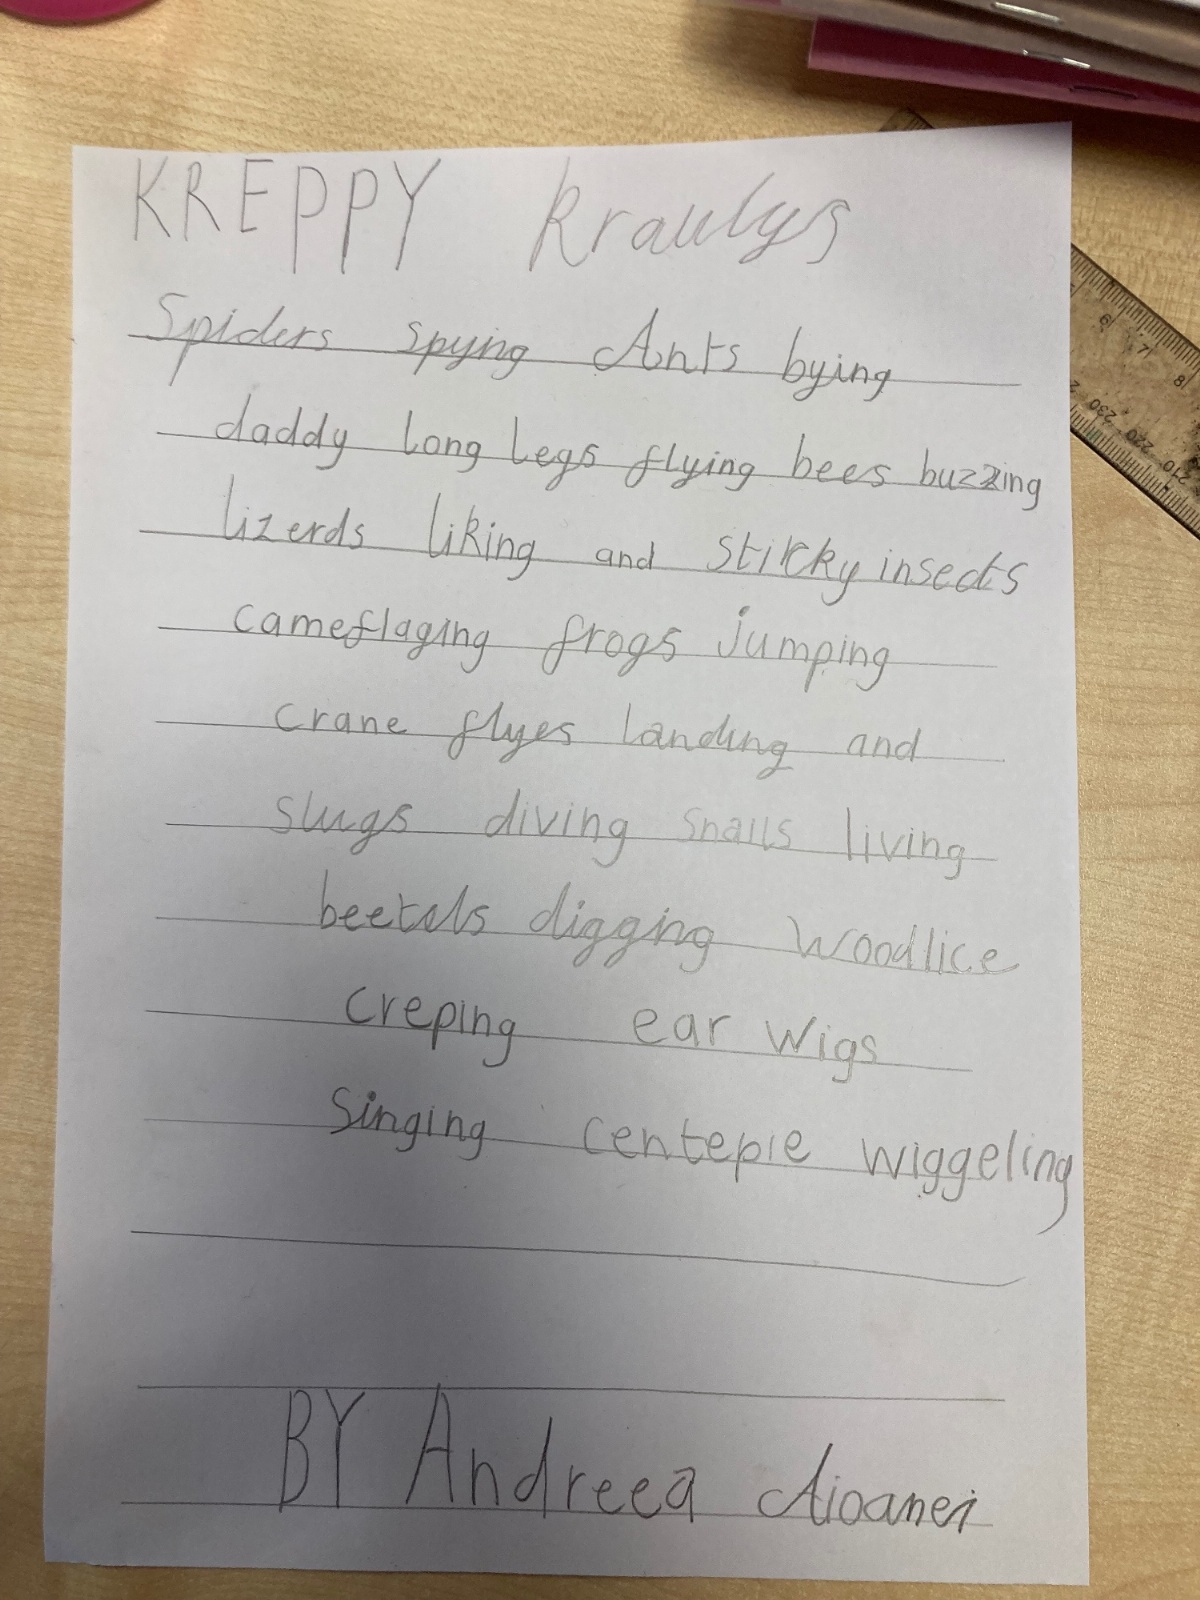 KREPPY Kraulys
Spiders spying Ants bying
daddy long legs flying bees buzzing
lizerds liking and stikky insects
cameflaging frogs jumping
crane flyes landing and
slugs diving snails living
beetels digging woodlice
creping ear wigs
singing centepie wiggeling
BY Andreea Aioanei